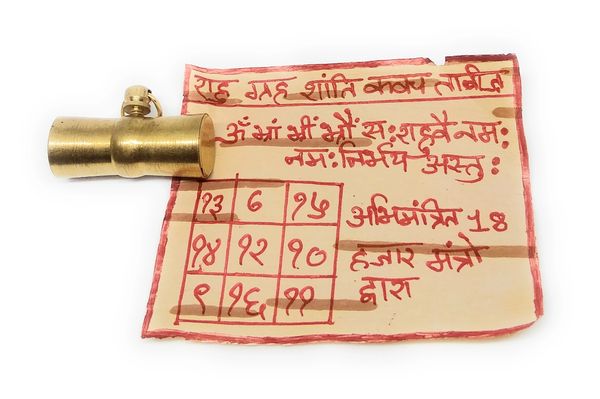 राहु ग्रह शांति कवच ताबीज
ॐ भ्रां भ्रीं भ्रौं स: राहवै नम:
नम: निर्भय अस्तु :
१३ ८ १५
१४ १२ १०
९ १६ ११
अभिमंत्रित 18
हजार मंत्रो
द्वारा